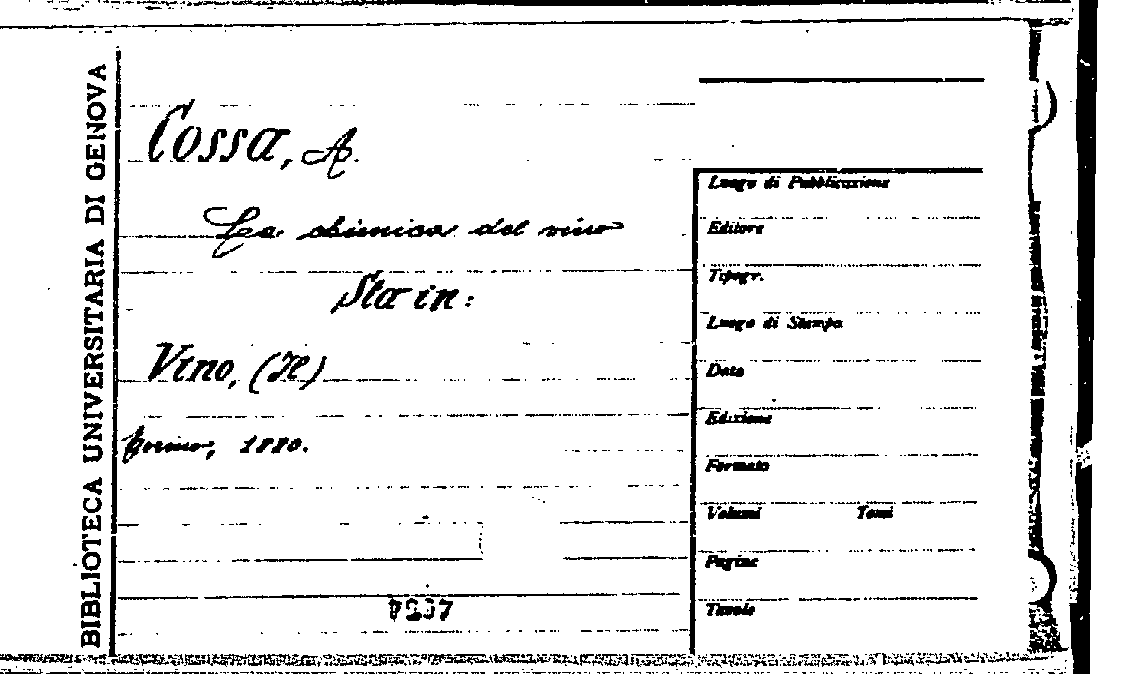 BIBLIOTECA UNIVERSITARIA DI GENOVA
Cossa, A.
La chimica del vino
Sta in:
Vino, (Il)
Torino, 1880.
Luogo di Pubblicazione
Editore
Tipogr.
Luogo di Stampa
Data
Edizione
Formato
Volumi Tomi
Pagine
Tavole